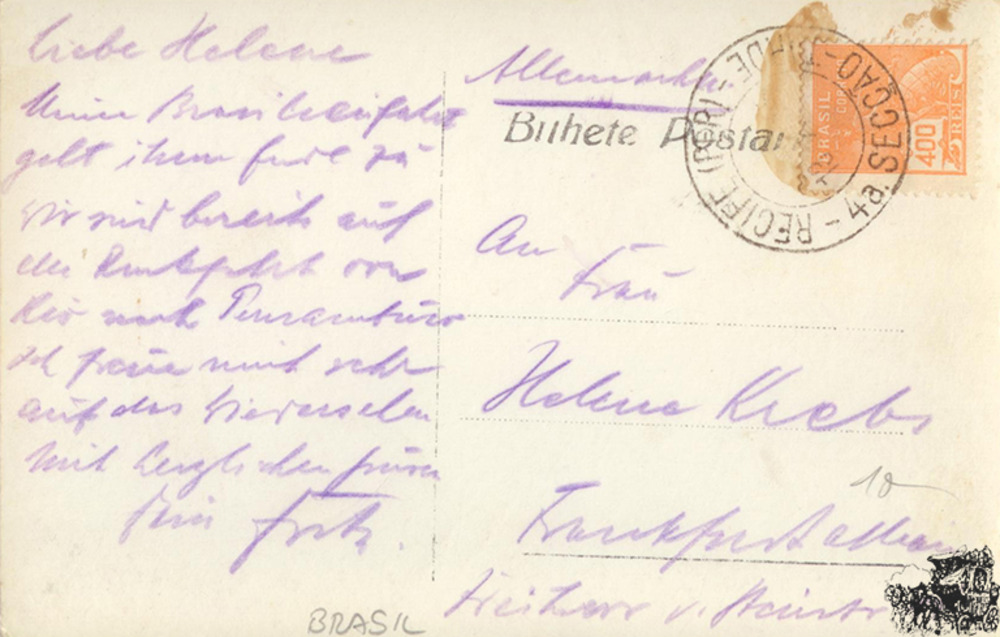 Liebe Helene
Meine Brasilienfahrt
geht ihrem Ende zu
Wir sind bereits auf
der Rückfahrt von
Rio nach Pernambuco
Ich freue mich sehr
auf das Wiedersehen
Mit herzlichen Grüßen
Dein Fritz.
BRASIL
Allemanha
Bilhete Postal
RECIFE (PER) - 4a. SECCAO -
BRASIL
CORREIO
400
REIS
An
Frau
Helene Krebs
10
Frankfurt a Main
Freiherr v. Steinstr